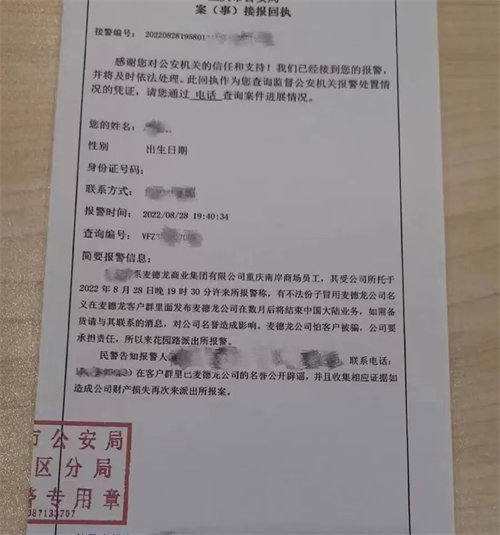 案（事）接报回执
接警编号：20220828195801
感谢您对公安机关的信任和支持！我们已经接到您的报警，
并将及时依法处理。此回执作为您查询监督公安机关报警处置情
况的凭证，请您通过 电话 查询案件进展情况。
您的姓名：
性别 出生日期
身份证号码：
联系方式：
报警时间：2022/08/28 19:40:34
查询编号：VFZ
简要报警信息：
系麦德龙商业集团有限公司重庆南岸商场员工，其受公司所托于
2022 年 8 月 28 日晚 19 时 30 分许来所报警称，有不法份子冒用麦德龙公司名
义在麦德龙客户群里面发布麦德龙公司在数月后将结束中国大陆业务，如需备
货请与其联系的消息，对公司名誉造成影响。麦德龙公司怕客户被骗，公司要
承担责任，所以来花园路派出所报警。
民警告知报警人 联系电话：
）在客户群里已麦德龙公司的名誉公开辟谣，并且收集相应证据如
造成公司财产损失再次来派出所报案。
市公安局
区分局
警专用章